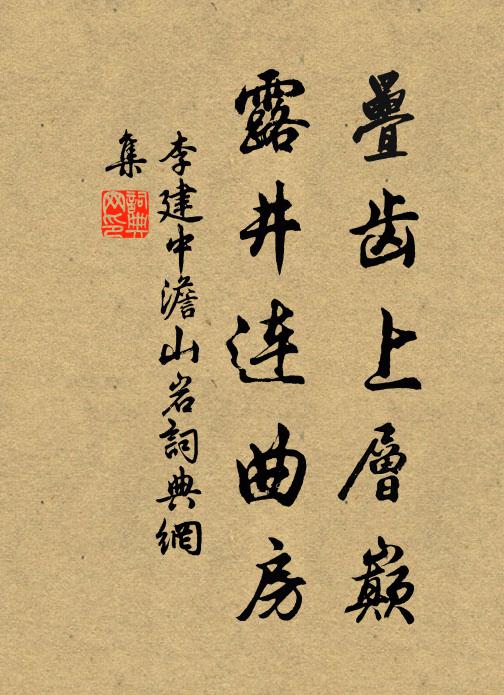 疊齿上層巔
露井連曲房
李建中澹山岩詞典網
集
詞典网印